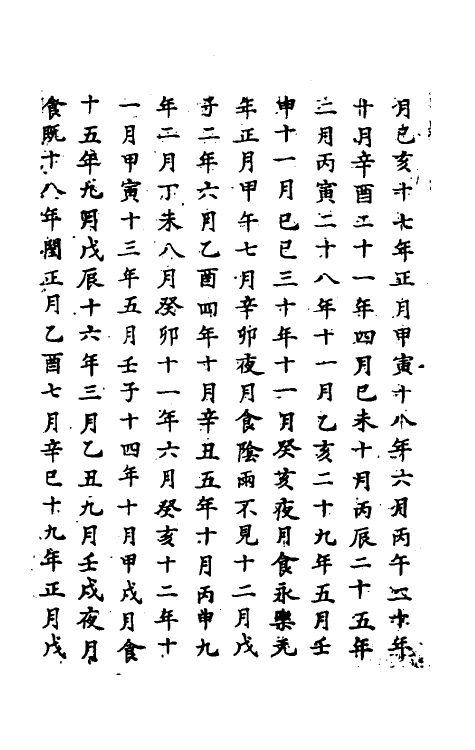 月己亥十七年正月甲寅十八年六月丙午二十年
十月辛酉二十一年四月己未十月丙辰二十五年
二月丙寅二十八年十一月乙亥二十九年五月壬
申十一月己巳三十年十一月癸亥夜月食永樂元
年正月甲午七月辛卯夜月食陰雨不見十二月戊
子二年六月乙酉四年十月辛丑五年十月丙申九
年二月丁未八月癸卯十一年六月癸亥十二年十
一月甲寅十三年五月壬子十四年十月甲戌月食
十五年九月戊辰十六年三月乙丑九月壬戌夜月
食既十八年閏正月乙酉七月辛巳十九年正月戊